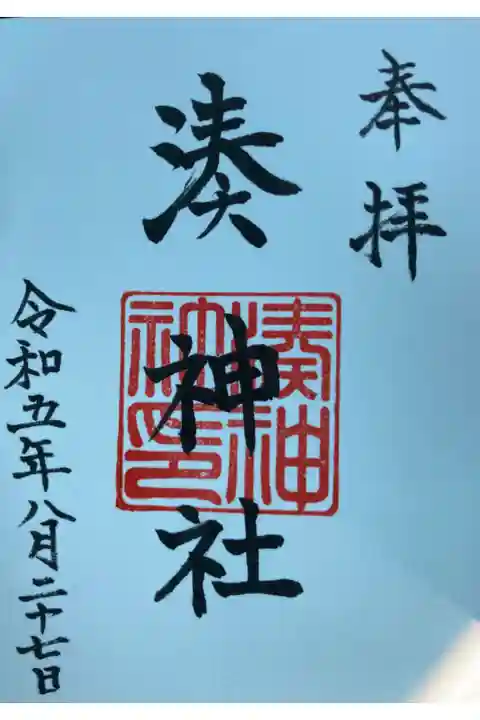 奉拝
湊神社
湊神社神印
令和五年八月二十七日